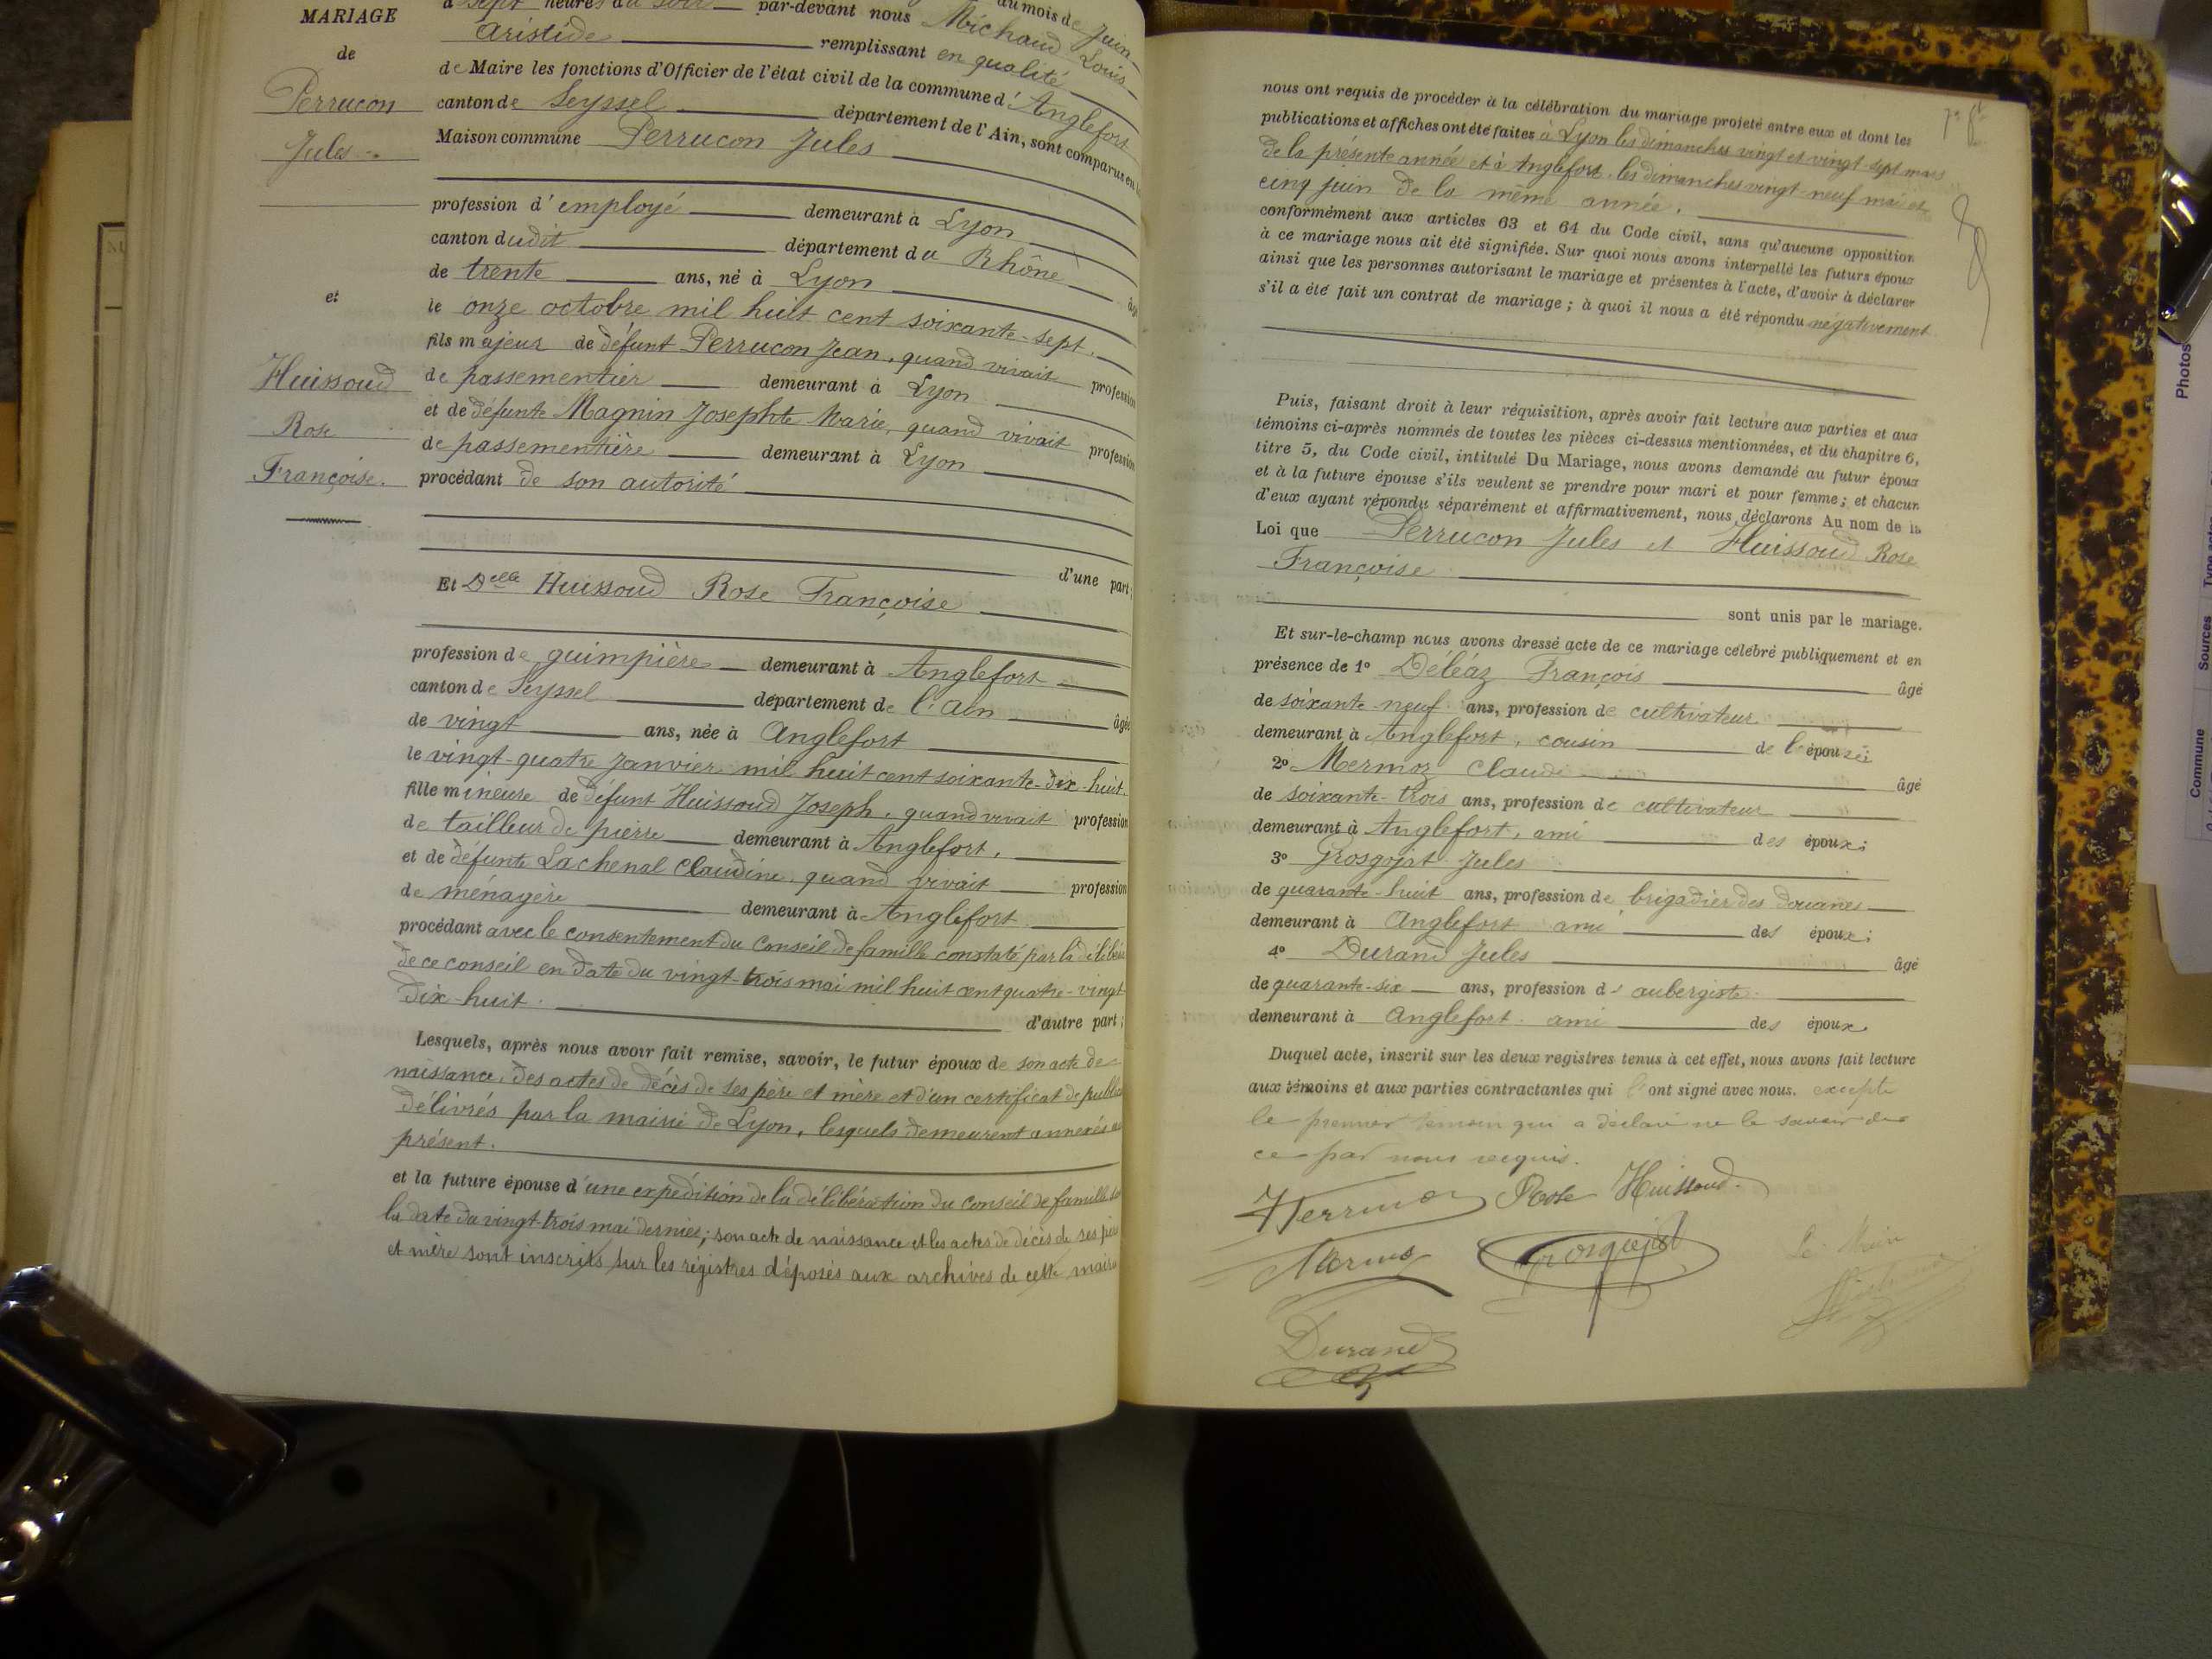 MARIAGE
de
Perrucon
Jules
et
Huissoud
Rose
Françoise.
à sept heures du soir par-devant nous Michaud Louis
au mois de Juin
Aristide remplissant en qualité
de Maire les fonctions d'Officier de l'état civil de la commune d'Anglefort
canton de Seyssel département de l'Ain, sont comparus en
Maison commune Perrucon Jules
profession d'employé demeurant à Lyon
canton dudit département du Rhône
de trente ans, né à Lyon
le onze octobre mil huit cent soixante-sept.
fils majeur de défunt Perrucon Jean, quand vivait profession
de passementier demeurant à Lyon
et de défunte Magnin Josephte Marie, quand vivait profession
de passementière demeurant à Lyon
procédant de son autorité
d'une part;
Et Delle Huissoud Rose Françoise
profession de guimpière demeurant à Anglefort
canton de Seyssel département de l'Ain âgée
de vingt ans, née à Anglefort
le vingt-quatre janvier mil huit cent soixante-dix-huit.
fille mineure de défunt Huissoud Joseph, quand vivait profession
de tailleur de pierre demeurant à Anglefort,
et de défunte Lachenal Claudine, quand vivait profession
de ménagère demeurant à Anglefort
procédant avec le consentement du Conseil de famille constaté par la délibéra
de ce conseil en date du vingt-trois mai mil huit cent quatre-vingt
dix-huit. d'autre part;
Lesquels, après nous avoir fait remise, savoir, le futur époux de son acte de
naissance, des actes de décès de ses père et mère et d'un certificat de public
délivrés par la mairie de Lyon, lesquels demeurent annexés au
présent.
et la future épouse d'une expédition de la délibération du conseil de famille
la date du vingt-trois mai dernier; son acte de naissance et les actes de décès de ses père
et mère sont inscrits sur les registres déposés aux archives de cette mairie
nous ont requis de procéder à la célébration du mariage projeté entre eux et dont les
publications et affiches ont été faites à Lyon les dimanches vingt et vingt-sept mars
de la présente année et à Anglefort, les dimanches vingt-neuf mai et
cinq juin de la même année.
conformément aux articles 63 et 64 du Code civil, sans qu'aucune opposition
à ce mariage nous ait été signifiée. Sur quoi nous avons interpellé les futurs époux
ainsi que les personnes autorisant le mariage et présentes à l'acte, d'avoir à déclarer
s'il a été fait un contrat de mariage; à quoi il nous a été répondu négativement
Puis, faisant droit à leur réquisition, après avoir fait lecture aux parties et aux
témoins ci-après nommés de toutes les pièces ci-dessus mentionnées, et du chapitre 6,
titre 5, du Code civil, intitulé Du Mariage, nous avons demandé au futur époux
et à la future épouse s'ils veulent se prendre pour mari et pour femme; et chacun
d'eux ayant répondu séparément et affirmativement, nous déclarons Au nom de la
Loi que Perrucon Jules et Huissoud Rose
Françoise
sont unis par le mariage.
Et sur-le-champ nous avons dressé acte de ce mariage célébré publiquement et en
présence de 1° Déléaz François âgé
de soixante-neuf ans, profession de cultivateur
demeurant à Anglefort, cousin de l'épousée
2° Mermoz Claude âgé
de soixante-trois ans, profession de cultivateur
demeurant à Anglefort, ami des époux;
3° Grosgojat Jules
de quarante-huit ans, profession de brigadier des douanes
demeurant à Anglefort ami des époux;
4° Durand Jules âgé
de quarante-six ans, profession d' aubergiste
demeurant à Anglefort ami des époux
Duquel acte, inscrit sur les deux registres tenus à cet effet, nous avons fait lecture
aux témoins et aux parties contractantes qui l'ont signé avec nous. excepté
le premier témoin qui a déclaré ne le savoir de
ce par nous requis.
Rose Huissoud
Durand
Le Maire
Photos
Sources
Commune